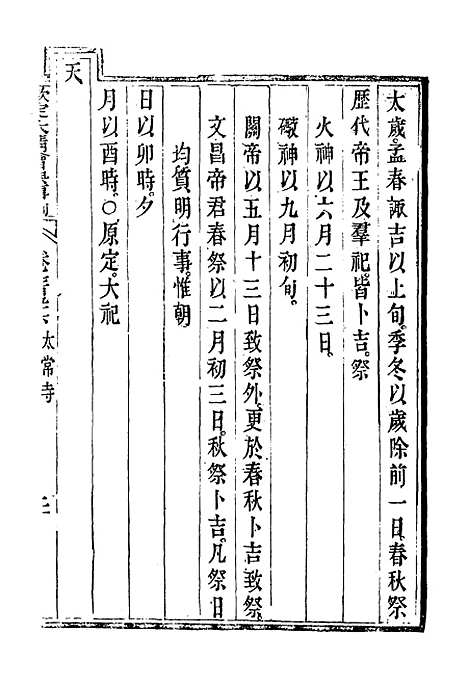 太歲孟春諏吉以上旬。季冬以歲除前一日。春秋祭
歷代帝王及羣祀。皆卜吉。祭
火神以六月二十三日。
礮神以九月初旬。
關帝以五月十三日致祭外。更於春秋卜吉致祭。
文昌帝君春祭以二月初三日。秋祭卜吉。凡祭日
均質明行事。惟朝
日以卯時。夕
月以酉時。○原定。大祀
天
欽定大清會典事例
太常寺